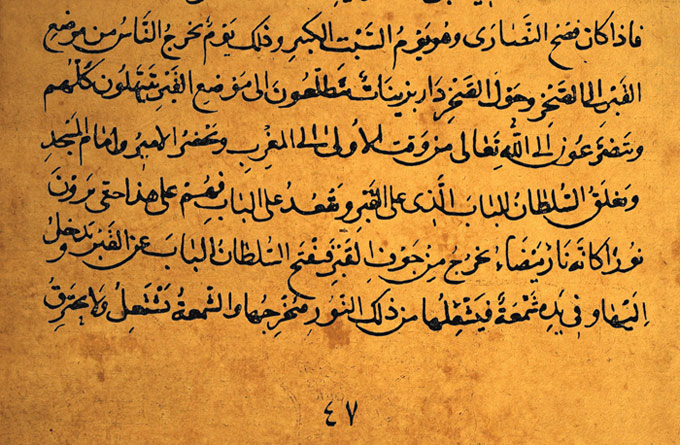 فاذا كان فصح النصارى وهو يوم السبت الكبير وذلك يوم يخرج الناس من موضع
القبر الى الصخر وحول الصخر دار بزينات يتطلعون الى موضع القبر يبتهلون كلهم
ويتضرعون الى الله تعالى من وقت الاولى الى المغرب ويحضر الامير وامام المسجد
ويغلق السلطان الباب الذي على القبر ويقعد على الباب فهم على هذا حتى يرون
نورا كانه نار بيضاء يخرج من جوف القبر فيفتح السلطان الباب عن القبر يدخل
اليها وفي يده شمعة فيشعلها من ذلك النور فيخرجها والشمعة تشتعل ولا يحترق
٤٧